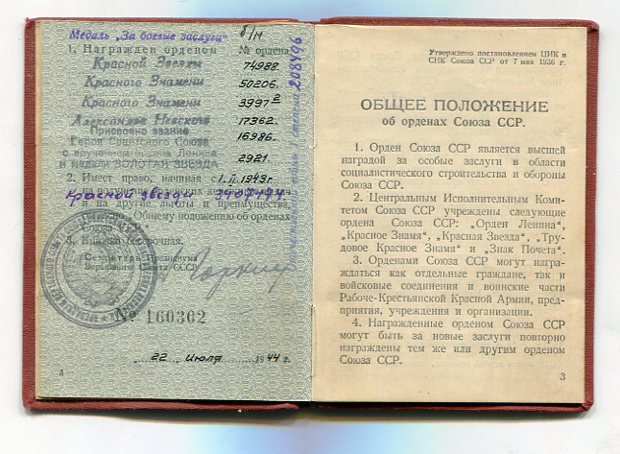 Медаль „За боевые заслуги“ б/н
1. Награжден орденом № ордена
Красной Звезды 74988.
Красного Знамени 50206.
Красного Знамени 3997²
Александра Невского 17362.
Присвоено звание
Героя Советского Союза 16986.
с вручением ордена Ленина
и медали ЗОЛОТАЯ ЗВЕЗДА 2921
2. Имеет право, начиная с 1.II.1943г.
на получение
Красной звезды 3407494
на другие льготы и преимущества,
Общему положению об орденах
3. Книжка бессрочная.
Секретарь Президиума
Верховного Совета СССР
№ 160302
22 Июля 1944 г.
4
208496
Утверждено постановлением ЦИК и
СНК Союза ССР от 7 мая 1936 г.
ОБЩЕЕ ПОЛОЖЕНИЕ
об орденах Союза ССР.
1. Орден Союза ССР является высшей
наградой за особые заслуги в области
социалистического строительства и обороны
Союза ССР.
2. Центральным Исполнительным Коми-
тетом Союза ССР учреждены следующие
ордена Союза ССР: „Орден Ленина“,
„Красное Знамя“, „Красная Звезда“, „Тру-
довое Красное Знамя“ и „Знак Почета“.
3. Орденами Союза ССР могут на-
граждаться как отдельные граждане, так и
войсковые соединения и воинские части
Рабоче-Крестьянской Красной Армии, пред-
приятия, учреждения и организации.
4. Награжденные орденом Союза ССР
могут быть за новые заслуги повторно
награждены тем же или другим орденом
Союза ССР.
3